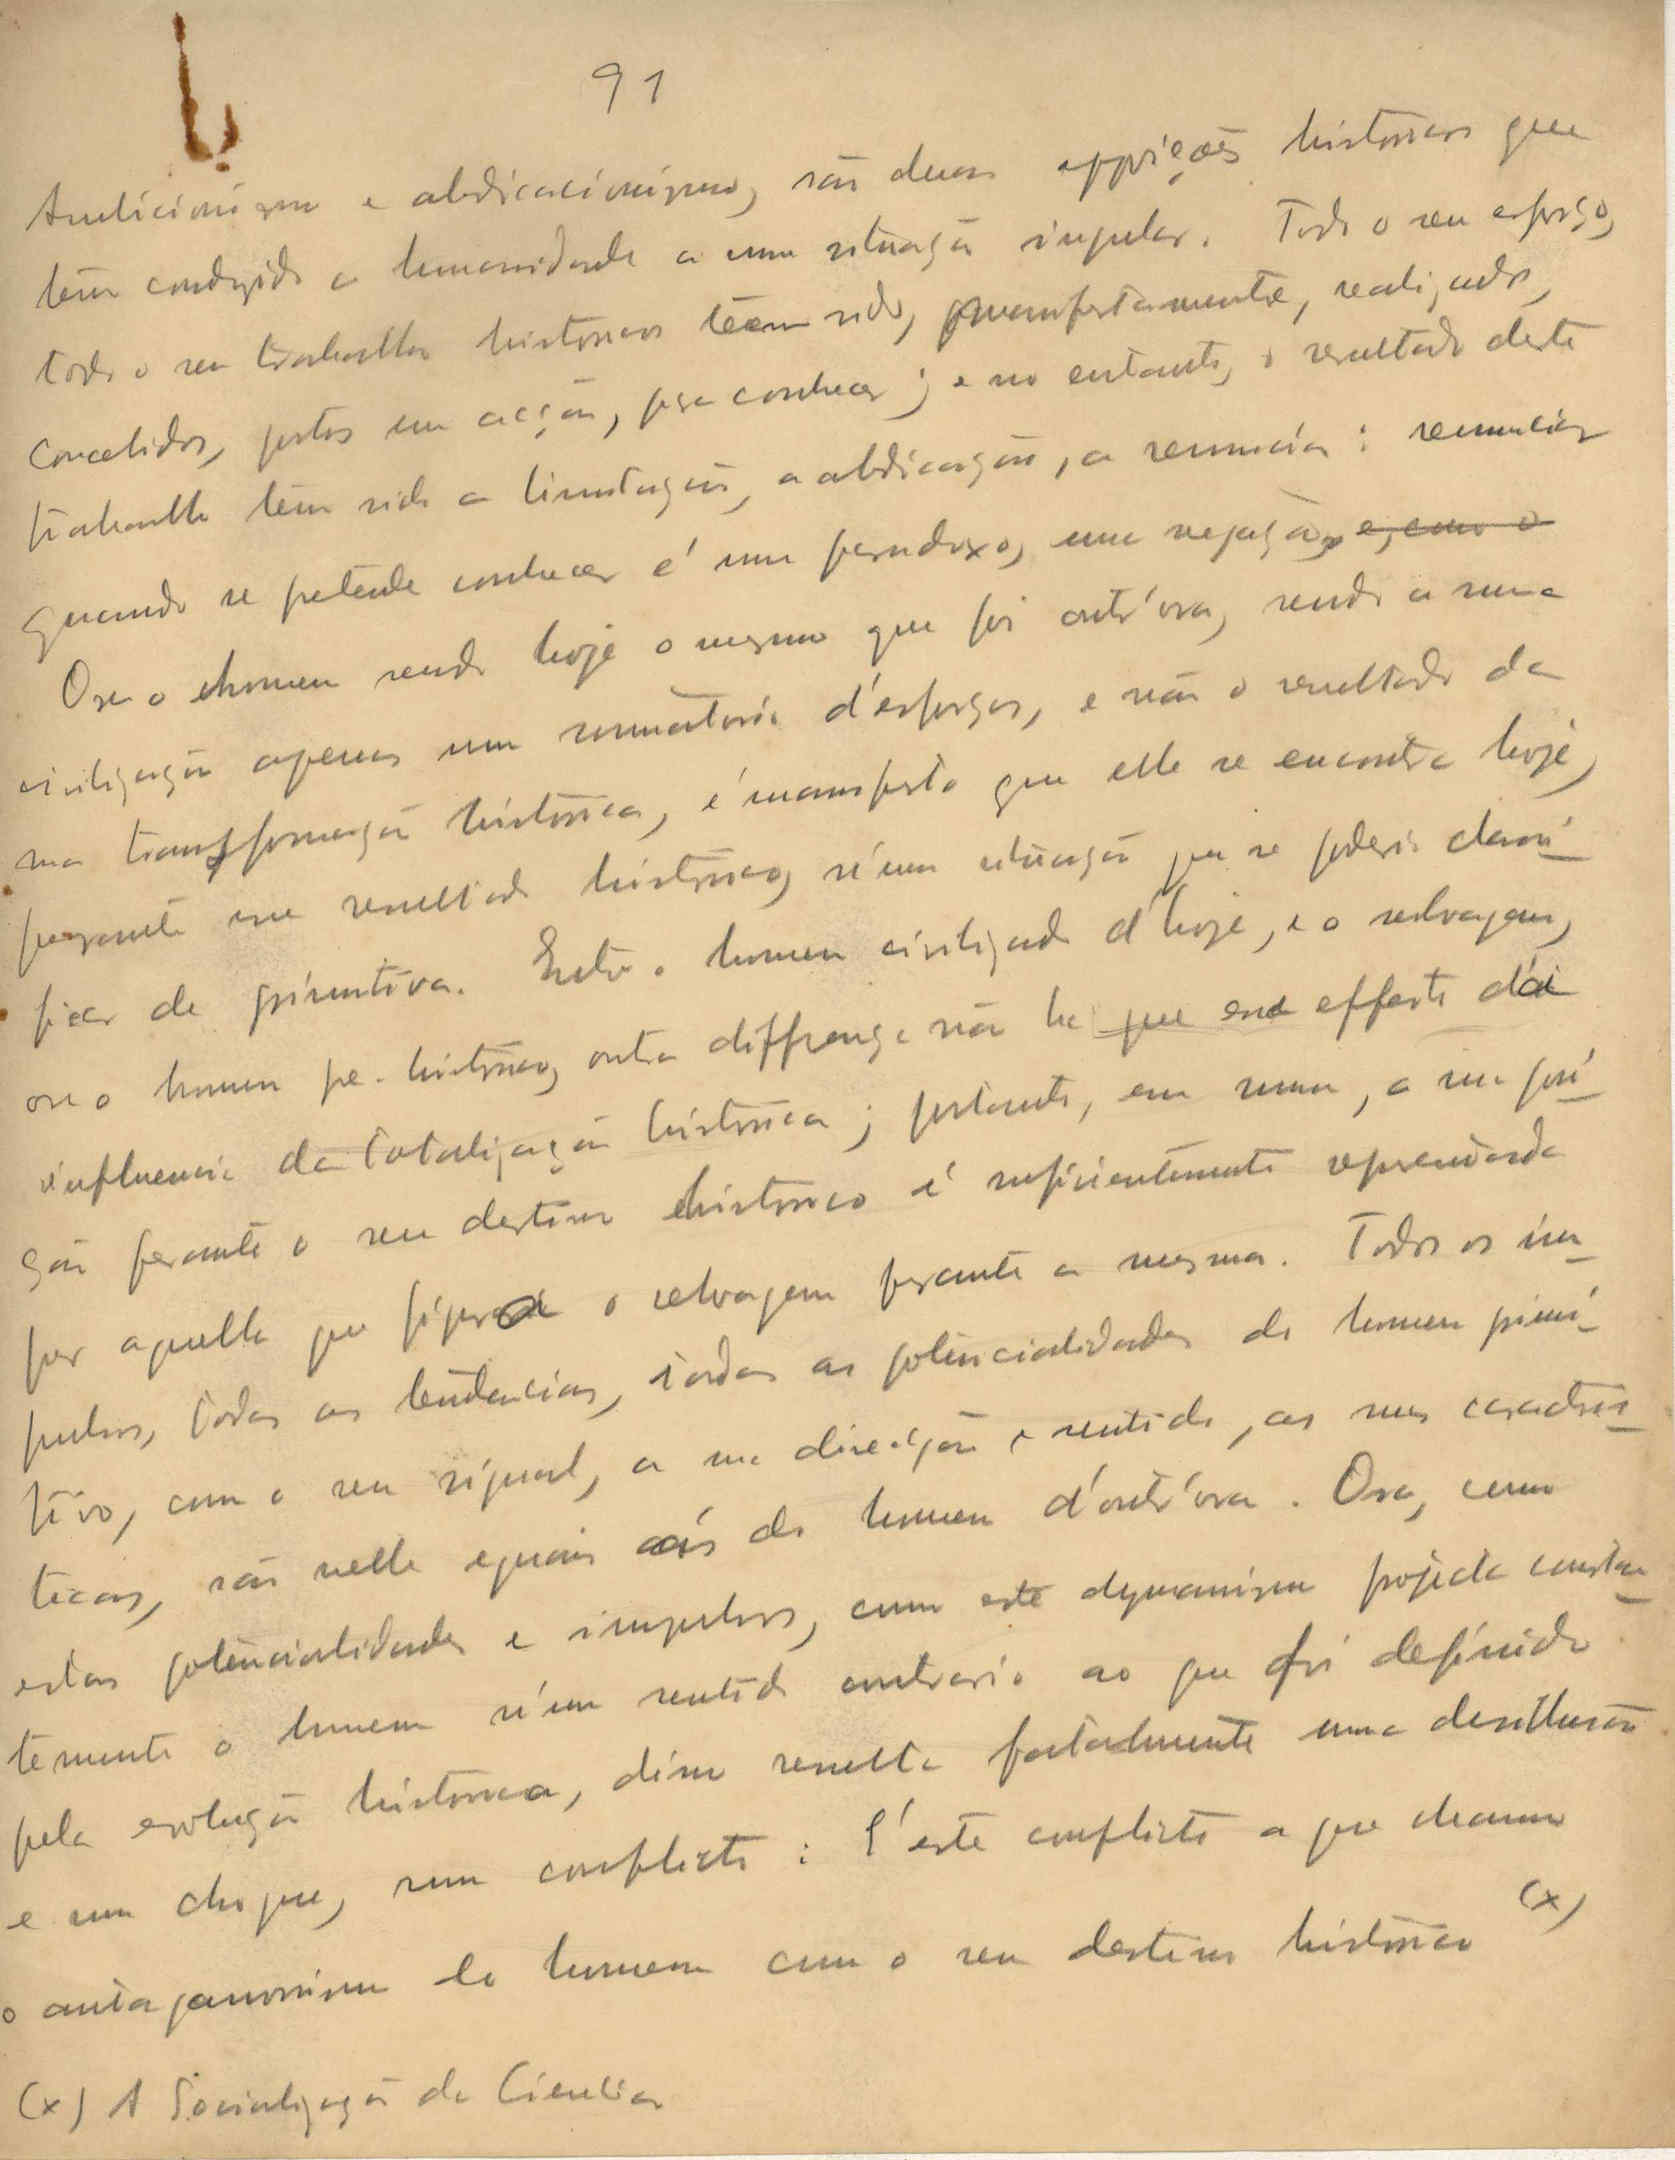 91
e abdicacionismo, são duas historicas que
têm conduzido a humanidade a uma situação singular. Todo o seu esforço,
todo o seu trabalho historicos teem sido, manifestamente, realizado,
concebidos, postos em acção, para conhecer; e no entanto, o resultado deste
trabalho têm sido a limitação, a abdicação, a renuncia: renunciar
quando se pretende conhecer é um paradoxo, uma negação, e, como o
Ora o homem sendo hoje o mesmo que foi outr'ora, sendo a sua
civilização apenas um somatorio d'esforços, e não o resultado da
sua transformação historica, é manifesto que elle se encontra hoje,
perante esse resultado historico, n'uma situação que se poderia classi-
ficar de primitiva. Entre o homem civilizado d'hoje, e o selvagem,
ou o homem pre-historico, outra differença não ha que esse effeito da
influencia da totalização historica; portanto, em suma, a sua posi-
ção perante o seu destino historico é suficientemente representada
por aquella que figura o selvagem perante a mesma. Todos os im-
pulsos, todas as tendencias, todas as potencialidades do homem primi-
tivo, com o seu signal, a sua direcção e sentido, as suas caracteris-
ticas, são nelle eguais ás do homem d'outr'ora. Ora, como
estas potencialidades e impulsos, como este dynamismo projecta constan-
temente o homem n'um sentido contrario ao que foi definido
pela evolução historica, disso resulta fatalmente uma desillusão
e um choque, num conflicto: É este conflicto a que chamo
o antagonismo do homem com o seu destino historico (x)
(x) A Socialização da Ciencia